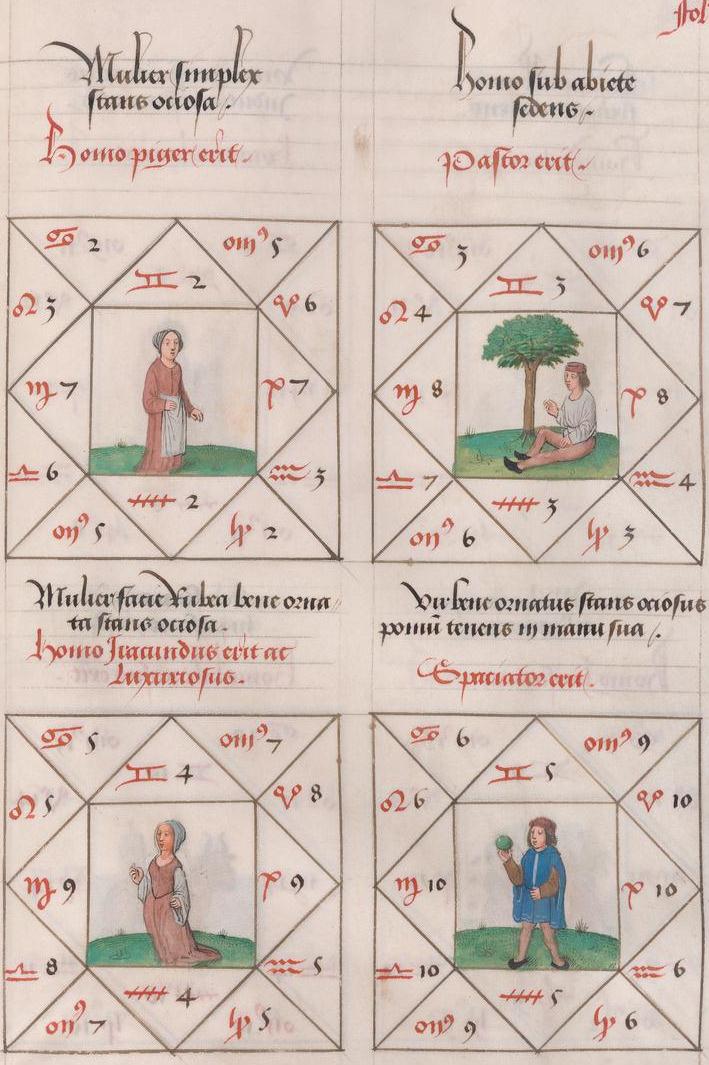 fol
Mulier simplex
stans ociosa.
Homo piger erit.
♋ 2
om⁹ 5
♊ 2
♌ 3
♉ 6
♍ 7
♈ 7
♎ 6
♒ 3
♓ 2
om⁹ 5
♑ 2
Homo sub abiete
sedens.
Pastor erit.
♋ 3
om⁹ 6
♊ 3
♌ 4
♉ 7
♍ 8
♈ 8
♎ 7
♒ 4
♓ 3
om⁹ 6
♑ 3
Mulier facie Rubea bene orna-
ta stans ociosa.
Homo Iracundus erit ac
luxuriosus.
♋ 5
om⁹ 7
♊ 4
♌ 5
♉ 8
♍ 9
♈ 9
♎ 8
♒ 5
♓ 4
om⁹ 7
♑ 5
Vir bene ornatus stans ociosus
pomū tenens in manu sua.
Spaciator erit.
♋ 6
om⁹ 9
♊ 5
♌ 6
♉ 10
♍ 10
♈ 10
♎ 10
♒ 6
♓ 5
om⁹ 9
♑ 6